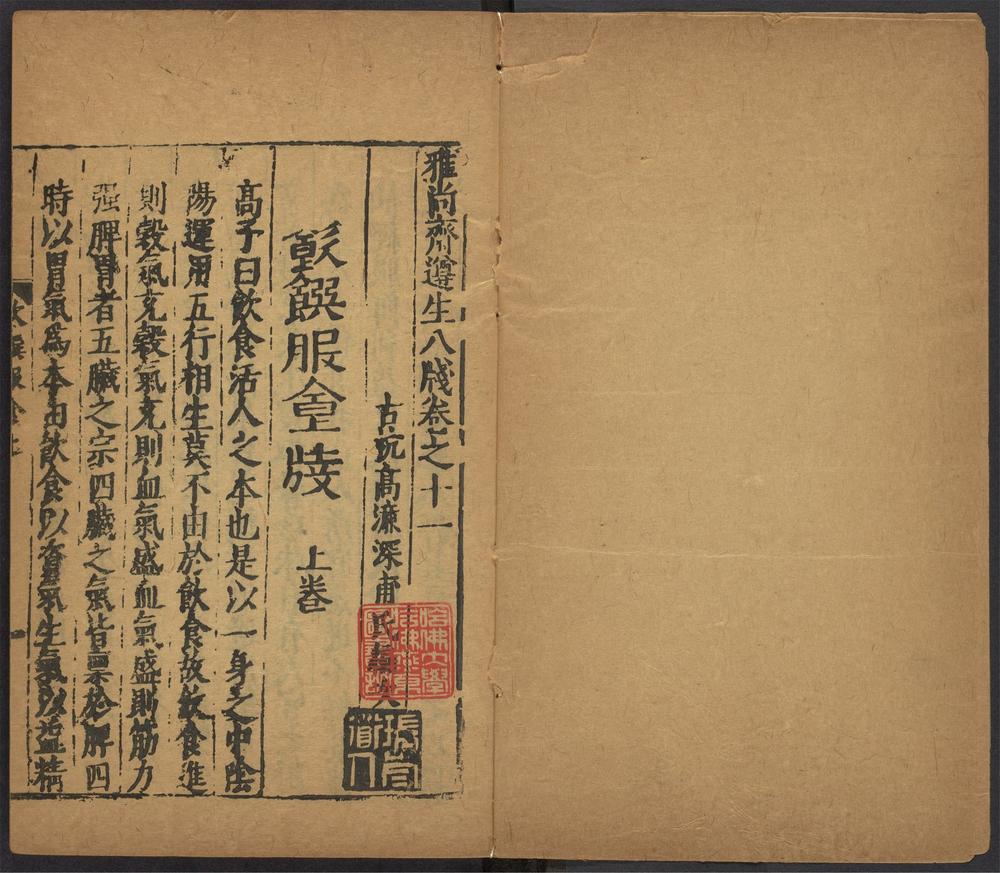 雅尚齋遵生八牋卷之十一
古杭髙濂深甫氏
飲饌服食牋 上卷
髙子曰飲食活人之本也是以一身之中陰
陽運用五行相生莫不由於飲食故飲食進
則穀氣充穀氣充則血氣盛血氣盛則筋力
强脾胃者五臟之宗四臟之氣皆禀於脾四
時以胃氣爲本由飲食以資氣生氣以益精
哈佛大學
哈佛燕京